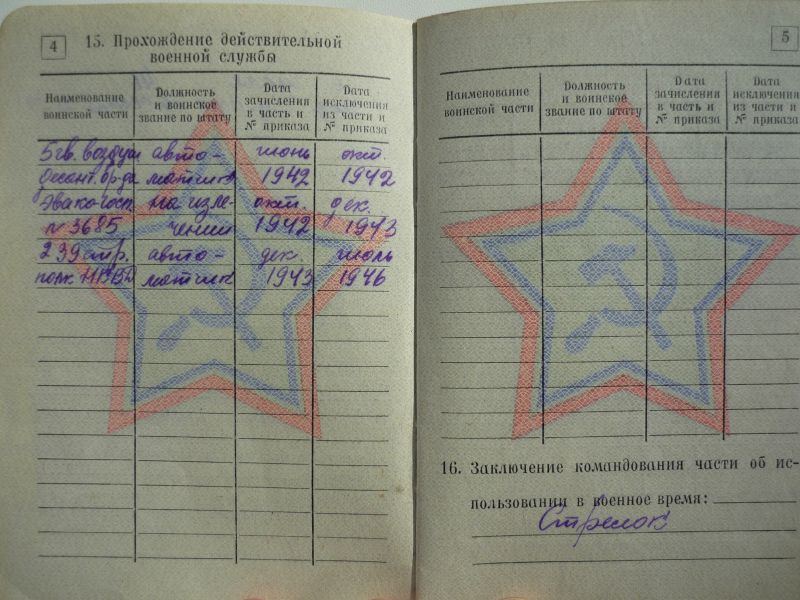 4
15. Прохождение действительной
военной службы
Наименование воинской части
Должность и воинское звание по штату
Дата зачисления в часть и № приказа
Дата исключения из части и № приказа
5 гв. воздуш авто- июнь окт.
десант. бр-да матчик 1942 1942
Эвакогосп. на изле- окт. дек.
№ 3685 чении 1942 1943
239 стр. авто- дек. июль
полк НКВД матчик 1943 1946
5
Наименование воинской части
Должность и воинское звание по штату
Дата зачисления в часть и № приказа
Дата исключения из части и № приказа
16. Заключение командования части об ис-
пользовании в военное время:
Стрелок